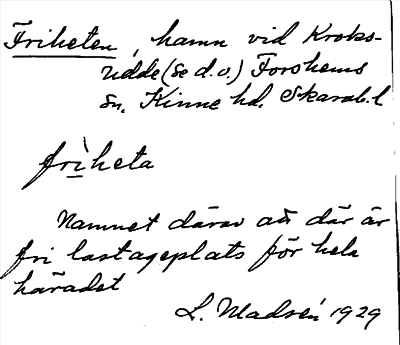 Friheten, hamn vid Kroks-
udde (se d.o.) Forshems
sn. Kinne hd. Skarab.l
frìheta
Namnet därav att där är
fri lastageplats för hela
häradet
L. Madsén 1929